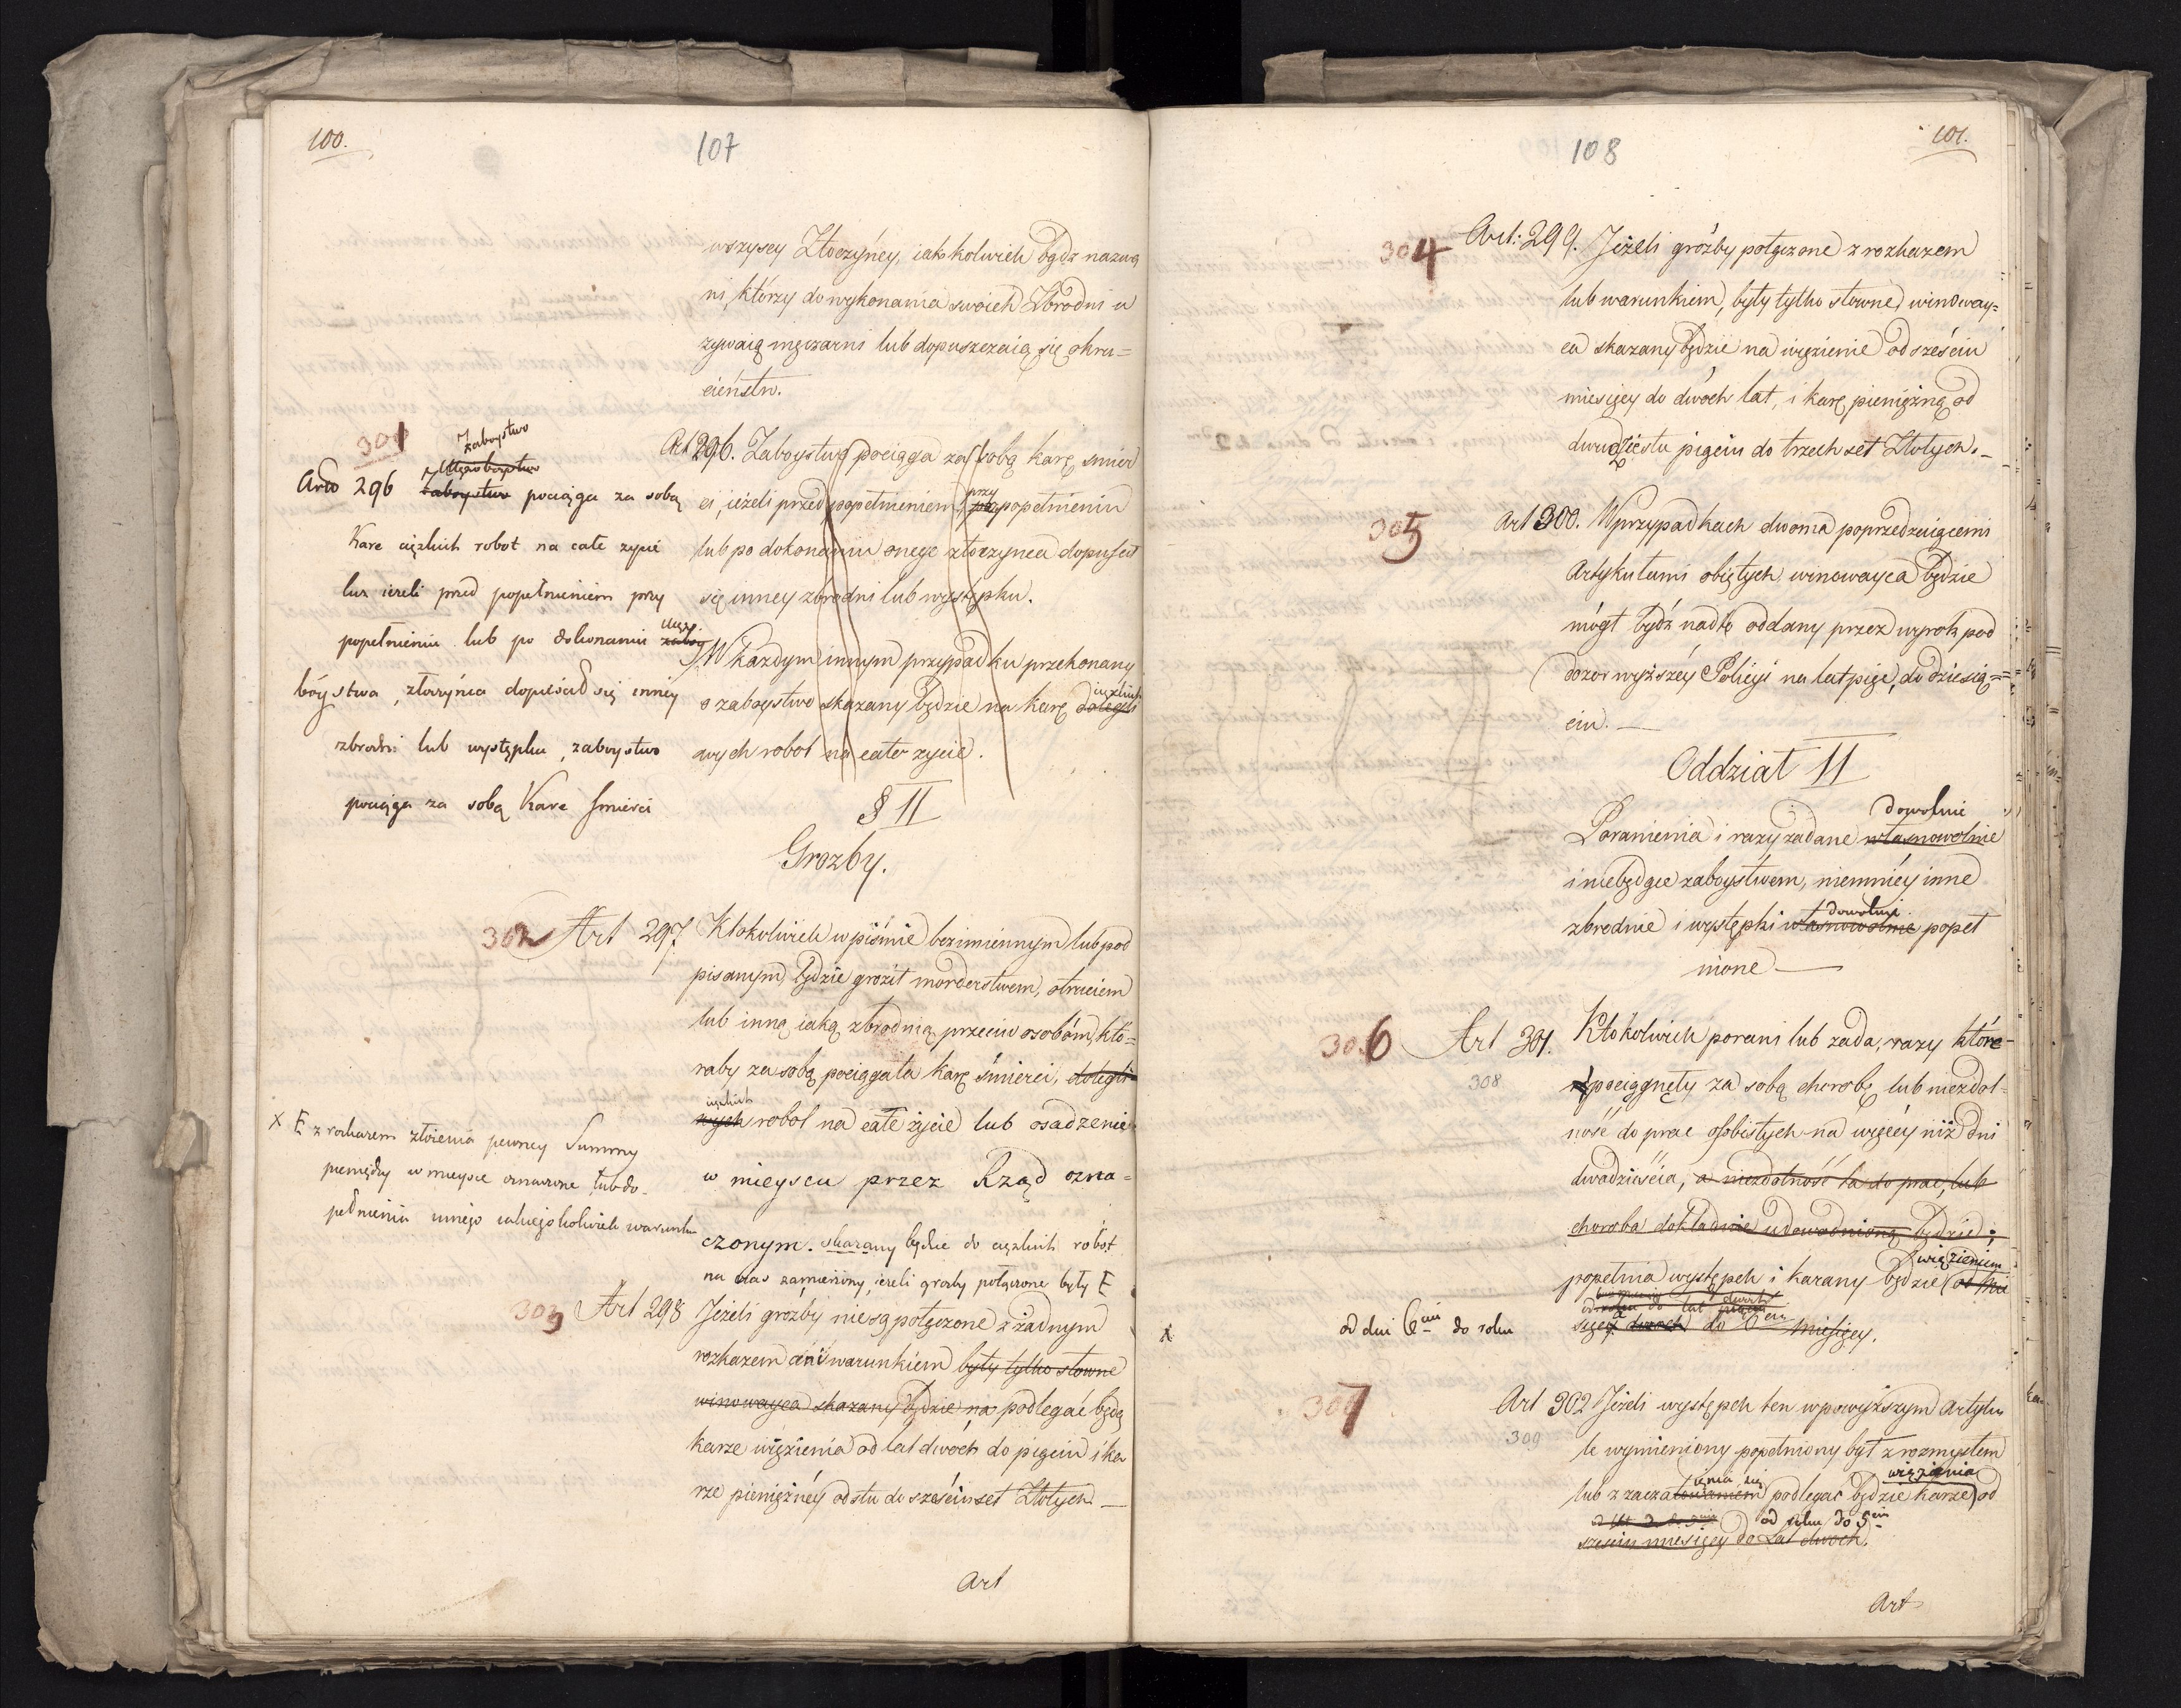 100.
107
wszyscy Złoczyńcy, iakokolwiek bądz nazwa
ni, którzy do wykonania swoich Zbrodni u
zywaią męczarni lub dopuszczaią się okru=
cieństw.
301
Zaboystwo
Art 296 zaboystwo pociąga za sobą
Kare ciężkich robot na całe zycie
lecz ieżeli przed popełnieniem przy
popełnieniu lub po dokonaniu
bóystwa, złoczyńca dopuścił się inney
zbrodni lub występku, zaboystwo
pociąga za sobą Kare Smierci
Art 296. Zaboystwo pociąga za sobą karę smier
ci, ieżeli przed popełnieniem, przy popełnieniu
lub po dokonaniu onego złoczynca dopuścił
się inney zbrodni lub występku.
W każdym innym przypadku przekonany
o zaboystwo skazany będzie na karę dolegli ciężkich
wych robot na całe zycie.
§ II
Grozby.
302 Art 297 Ktokolwiek w piśmie bezimiennym lub pod
pisanym, będzie groził morderstwem, otruciem
lub inną iaką zbrodnią przeciw osobóm, któ=
raby za sobą pociągała karę śmierci, dolegli
ciężkich
wych robot na całe życie lub osadzenie
w mieyscu przez Rząd ozna=
czonym. skazany będzie do ciężkich robot
na czas zamierzony, ieżeli grozby połączone były E
X E z rozkazem złożenia pewney Summy
pieniędzy w mieysce oznaczone lub do-
pełnienia innego iakiegokolwiek warunku
303 Art 298 Jeżeli grozby nie są połączone z żadnym
rozkazem ani warunkiem były tylko słowne
winowayca skazany będzie na podlegać będą
karze więzienia od lat dwóch do pięciu i ka
rze pieniężnéy od stu do sześciuset Złotych —
Art
108
101.
304 Art: 299. Jeżeli gróźby połączone z rozkazem
lub warunkiem, były tylko słowne, winoway=
ca skazany będzie na więzienie od sześciu
miesięcy do dwóch lat, i karę pieniężną od
dwudziestu pięciu do trzech set Złotych. —
305 Art 300. W przypadkach dwoma poprzedzaiącemi
Artykułami obiętych winowayca będzie
mógł bydź nadto oddany przez wyrok pod
dozor wyższéy Policyi na lat pięć, do dziesię=
ciu. —
Oddział II
dowolnie
Poranienia i razy zadane własnowolnie
i niebędące zaboystwem, niemniéy inne
dowolnie
zbrodnie i występki własnowolnie popeł
nione —
306 Art 301. Ktokolwiek porani lub zada, razy które
308
pociągnęły za sobą chorobę lub niezdol-
ność do prac osobistych na więcéy niż dni
dwadzieścia, a niezdolność ta do prac, lub
choroba dokładnie udowodnioną będzie;
więzieniem
popełnia występek i karany będzie od mie
od roku do lat dwoch
sięcy dwoch do 6ciu miesięcy.
X od dni 6ciu do roku
307 Art 302 Jeżeli występek ten w powyższym Artyku
309
le wymieniony popełniony był z rozmysłem
ienia się więzienia
lub z zaczatowaniem podlegać będzie karze od
od roku do 5ciu
sześciu miesięcy do Lat dwoch.
Art